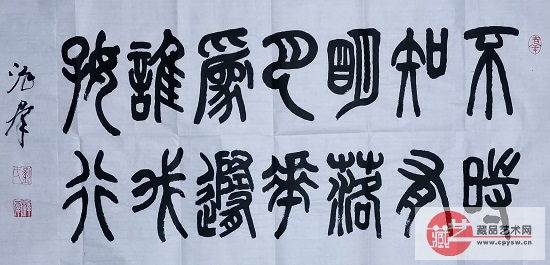 不知明月為誰好
時有落花隨我行
藏艺
藏品艺术网
www.cpysw.cn